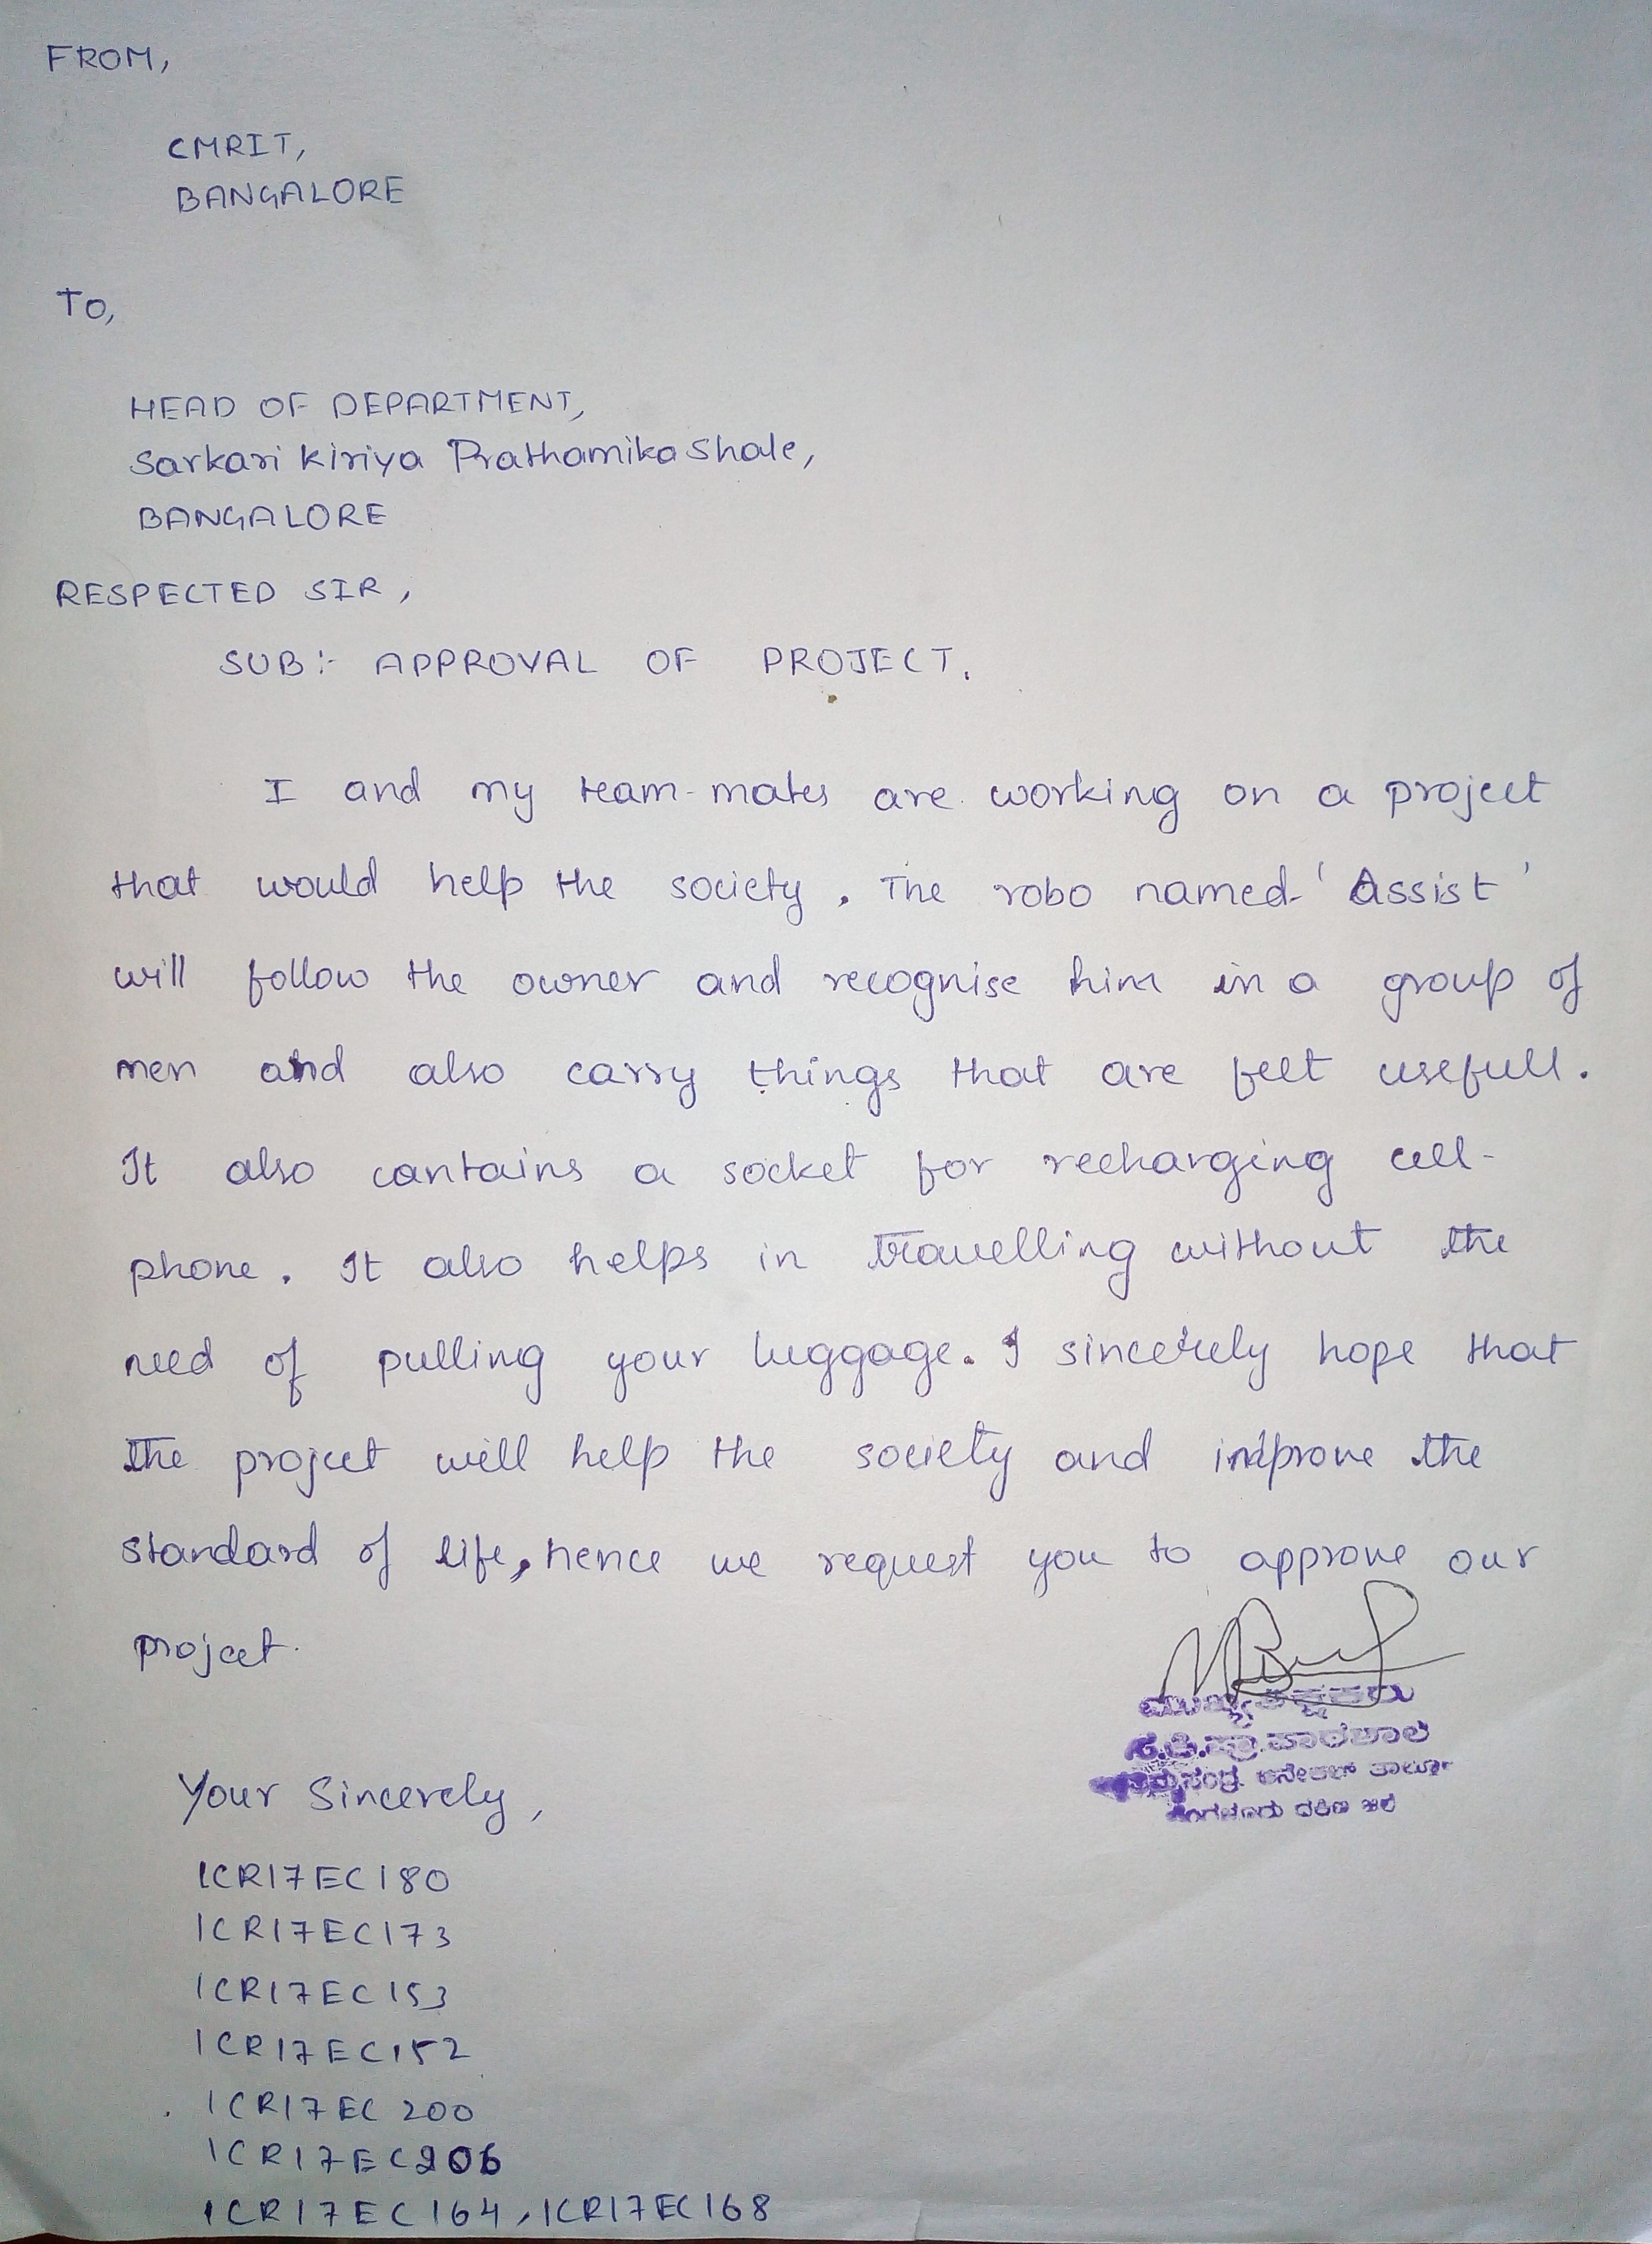 FROM,
CMRIT,
BANGALORE
To,
HEAD OF DEPARTMENT,
Sarkari Kiriya Prathamika Shale,
BANGALORE
RESPECTED SIR,
SUB:- APPROVAL OF PROJECT.
I and my team-mates are working on a project
that would help the society. The robo named 'Assist'
will follow the owner and recognise him in a group of
men and also carry things that are felt usefull.
It also contains a socket for recharging cell-
phone. It also helps in travelling without the
need of pulling your luggage. I sincerely hope that
the project will help the society and improve the
standard of life, hence we request you to approve our
project.
ಮುಖ್ಯ ಶಿಕ್ಷಕರು
ಸ.ಕಿ.ಪ್ರಾ.ಪಾಠಶಾಲೆ
ಆನೇಕಲ್ ತಾಲ್ಲೂಕು
ಬೆಂಗಳೂರು ದಕ್ಷಿಣ ಜಿಲ್ಲೆ
Your Sincerely,
1CR17EC180
1CR17EC173
1CR17EC153
1CR17EC152
1CR17EC200
1CR17EC206
1CR17EC164, 1CR17EC168